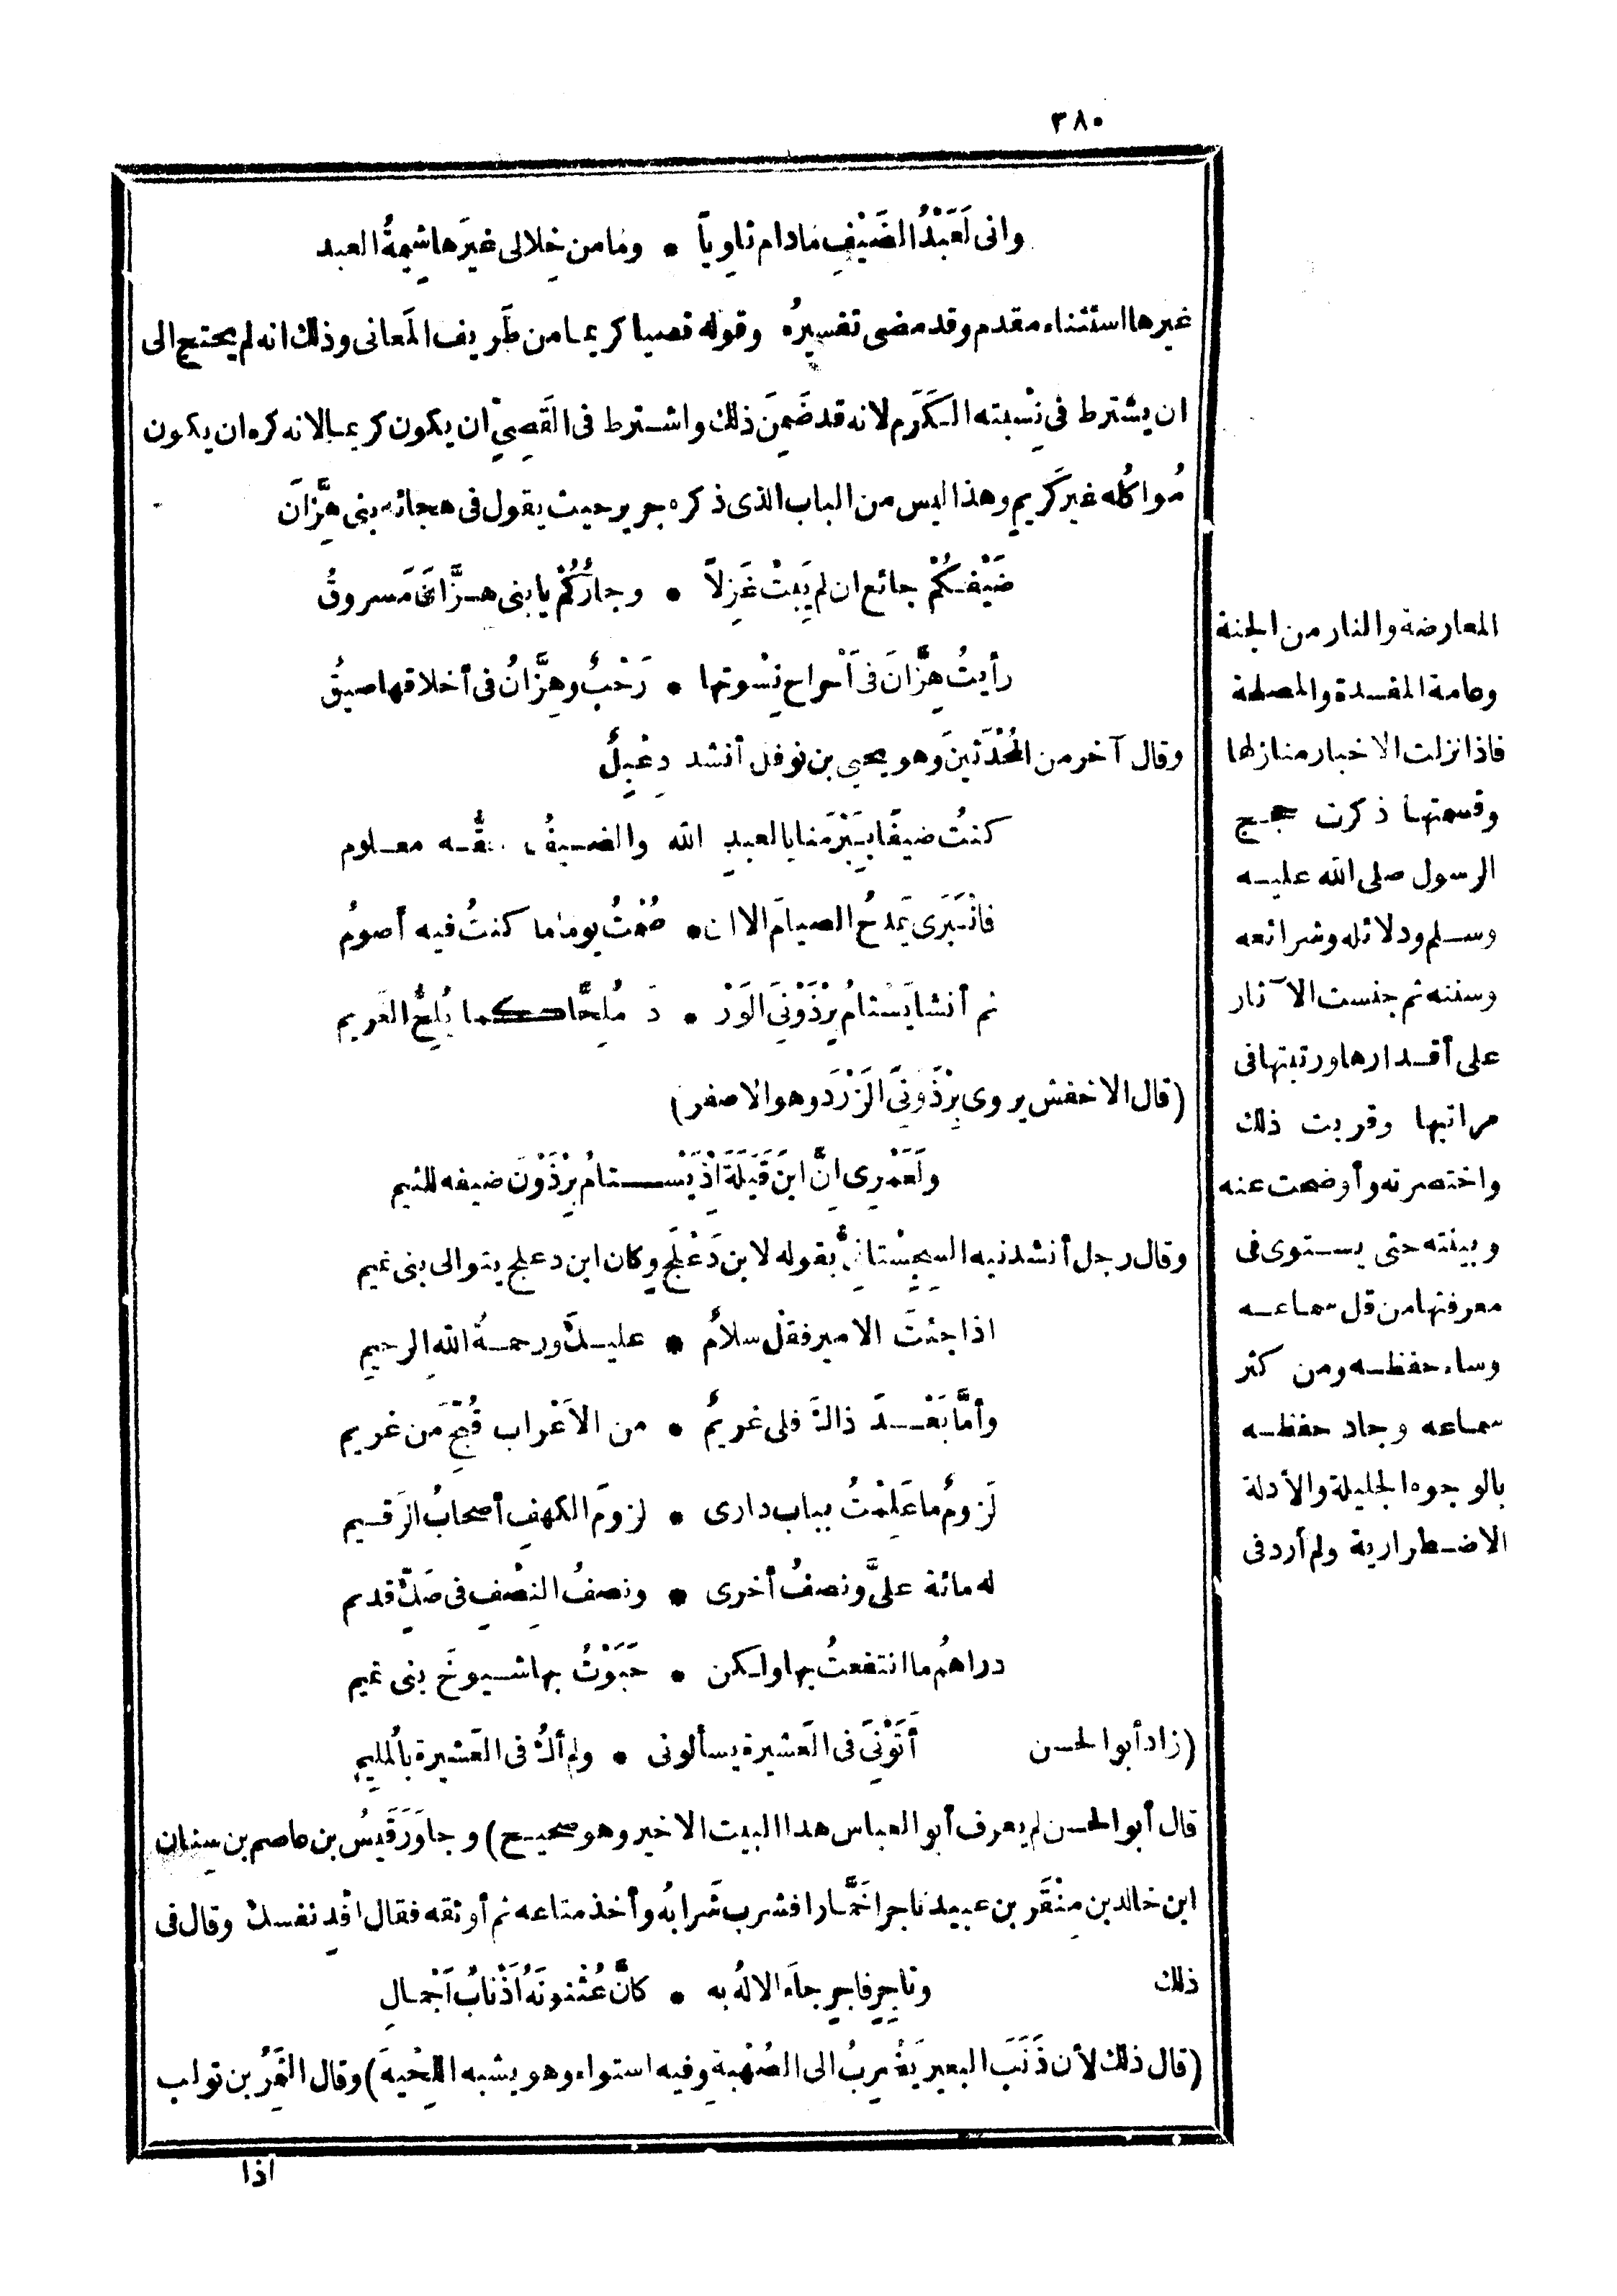 ٣٨٠
وانى لَعَبْدُ الضَيْفِ مادام ثاوِياً • وما من خِلالى غيرَها شِيمةُ العبد
غيرها استثناء مقدم وقد مضى تفسيرُه وقوله قصيا كريما من طَرِيف المَعانى وذلك انه لم يحتج الى
ان يشترط فى نِسْبته الكَرَم لانه قد ضَمِنَ ذلك واشترط فى القَصِىِّ ان يكون كريما لانه كره ان يكون
مُواكلُه غيرَ كَريم وهذا ليس من الباب الذى ذكره جرير حيث يقول فى هجائه بنى هِزَّان
ضَيْفُكُمْ جائع ان لم يَبِتْ غَزِلاً • وجارُكُمْ يا بنى هِزَّانَ مَسروقُ
رأيتُ هِزَّانَ فى أَحْراحِ نِسْوتها • رَحْبٌ وهِزَّانُ فى أخلاقها ضيقُ
وقال آخر من المُحْدَثينَ وهو يحيى بن نوفل أنشد دِعْبِلٌ
كنتُ ضيفًا بِبَرْمَنايا لعبدِ الله والضيفُ حقُّه معلوم
فانْبَرَى يَمدحُ الصيامَ الا ان • صُمْتُ يوما ما كنتُ فيه أصومُ
ثم أنشا يَسْتامُ بِرْذَوْنِىَ الوَرْ • دَ مُلِحًّا كما يُلِحُّ الغَريم
(قال الاخفش يروى بِرْذَوْنِىَ الزَرْدَ وهو الاصفر)
ولَعَمْرِى انَّ ابنَ قَيْلَةَ اذْ يَسْتامُ بِرْذَوْنَ ضيفه للئيم
وقال رجل أنشدنيه السِجِسْتانِىُّ بقوله لابن دَعْلَجٍ وكان ابن دعلج يتوالى بنى تميم
اذا جئتَ الامير فقل سلامٌ • عليك ورحمةُ اللهِ الرحيمِ
وأمَّا بَعْدَ ذاكَ فلى غريمٌ • من الاَعْراب قُبِّحَ من غريم
لَزومٌ ما عَلِمْتُ بباب دارى • لزومَ الكهفِ أصحابُ الرَقيم
له مائة علىَّ ونصفُ أخرى • ونصفُ النِصْفِ فى صَكٍّ قديم
دراهمُ ما انتفعتُ بها ولكن • حَبَوْتُ بها شيوخَ بنى تميم
(زاد أبو الحسن أَتَوْنِىَ فى العَشيرة يسألونى • ولم أكُ فى العَشيرة بالمُليمِ
قال أبو الحسن لم يعرف أبو العباس هذا البيت الاخير وهو صحيح) وجاوَرَ قَيسُ بن عاصم بن سِنان
ابن خالد بن مِنْقَر بن عبيد تاجرا خَمَّارا فشرب شَرابُه وأخذ متاعه ثم أوثقه فقال افْدِ نفسك وقال فى
ذلك وتاجِرٍ فاجِرٍ جاءَ الالهُ به • كانَّ عُثْنونَهُ أَذْنابُ أَجْمالِ
(قال ذلك لأن ذَنَبَ البعير يَضْرِبُ الى الصُهْبةِ وفيه استواء وهو يشبه اللِحْيةَ) وقال النَمِرُ بن تولب
اذا
المعارضة والنار من الجنة
وعامة المفسدة والمصلحة
فاذا نزلت الاخبار منازلها
وقسمتها ذكرت حجج
الرسول صلى الله عليه
وسلم ودلائله وشرائعه
وسننه ثم جنست الآثار
على أقدارها ورتبتها فى
مراتبها وقربت ذلك
واختصرته وأوضحت عنه
وبينته حتى يستوى فى
معرفتها من قل سماعه
وساء حفظه ومن كثر
سماعه وجاد حفظه
بالوجوه الجليلة والأدلة
الاضطرارية ولم أرد فى